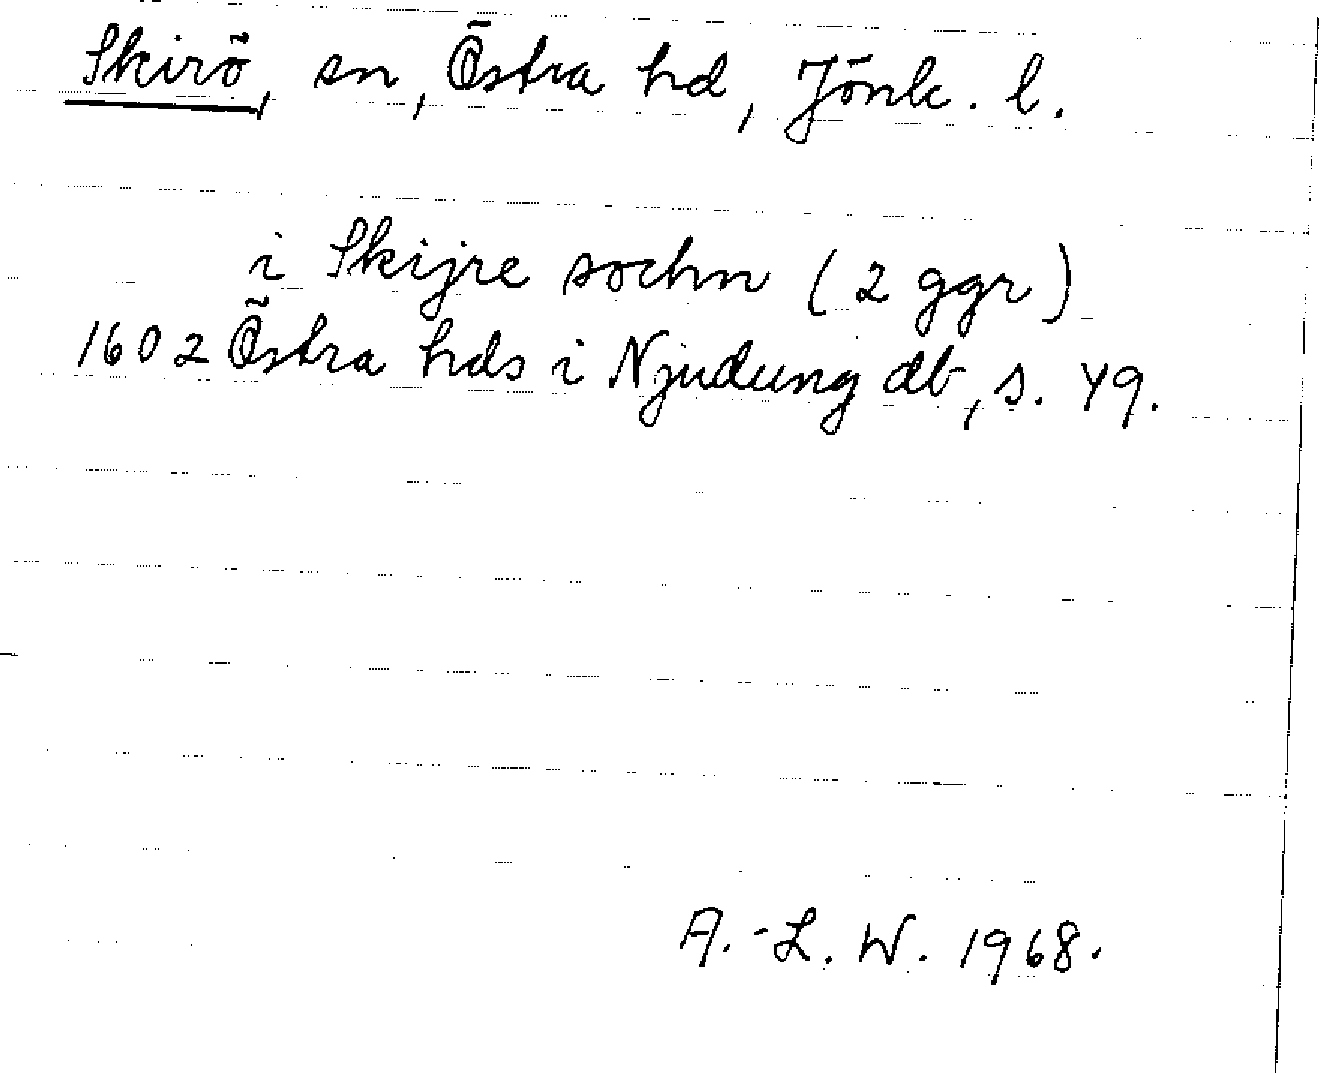 Skirö, sn, Östra hd, Jönk. l.
i Skijre sochn (2 ggr)
1602 Östra hds i Njudung db, s. 49.
A.-L. W. 1968.